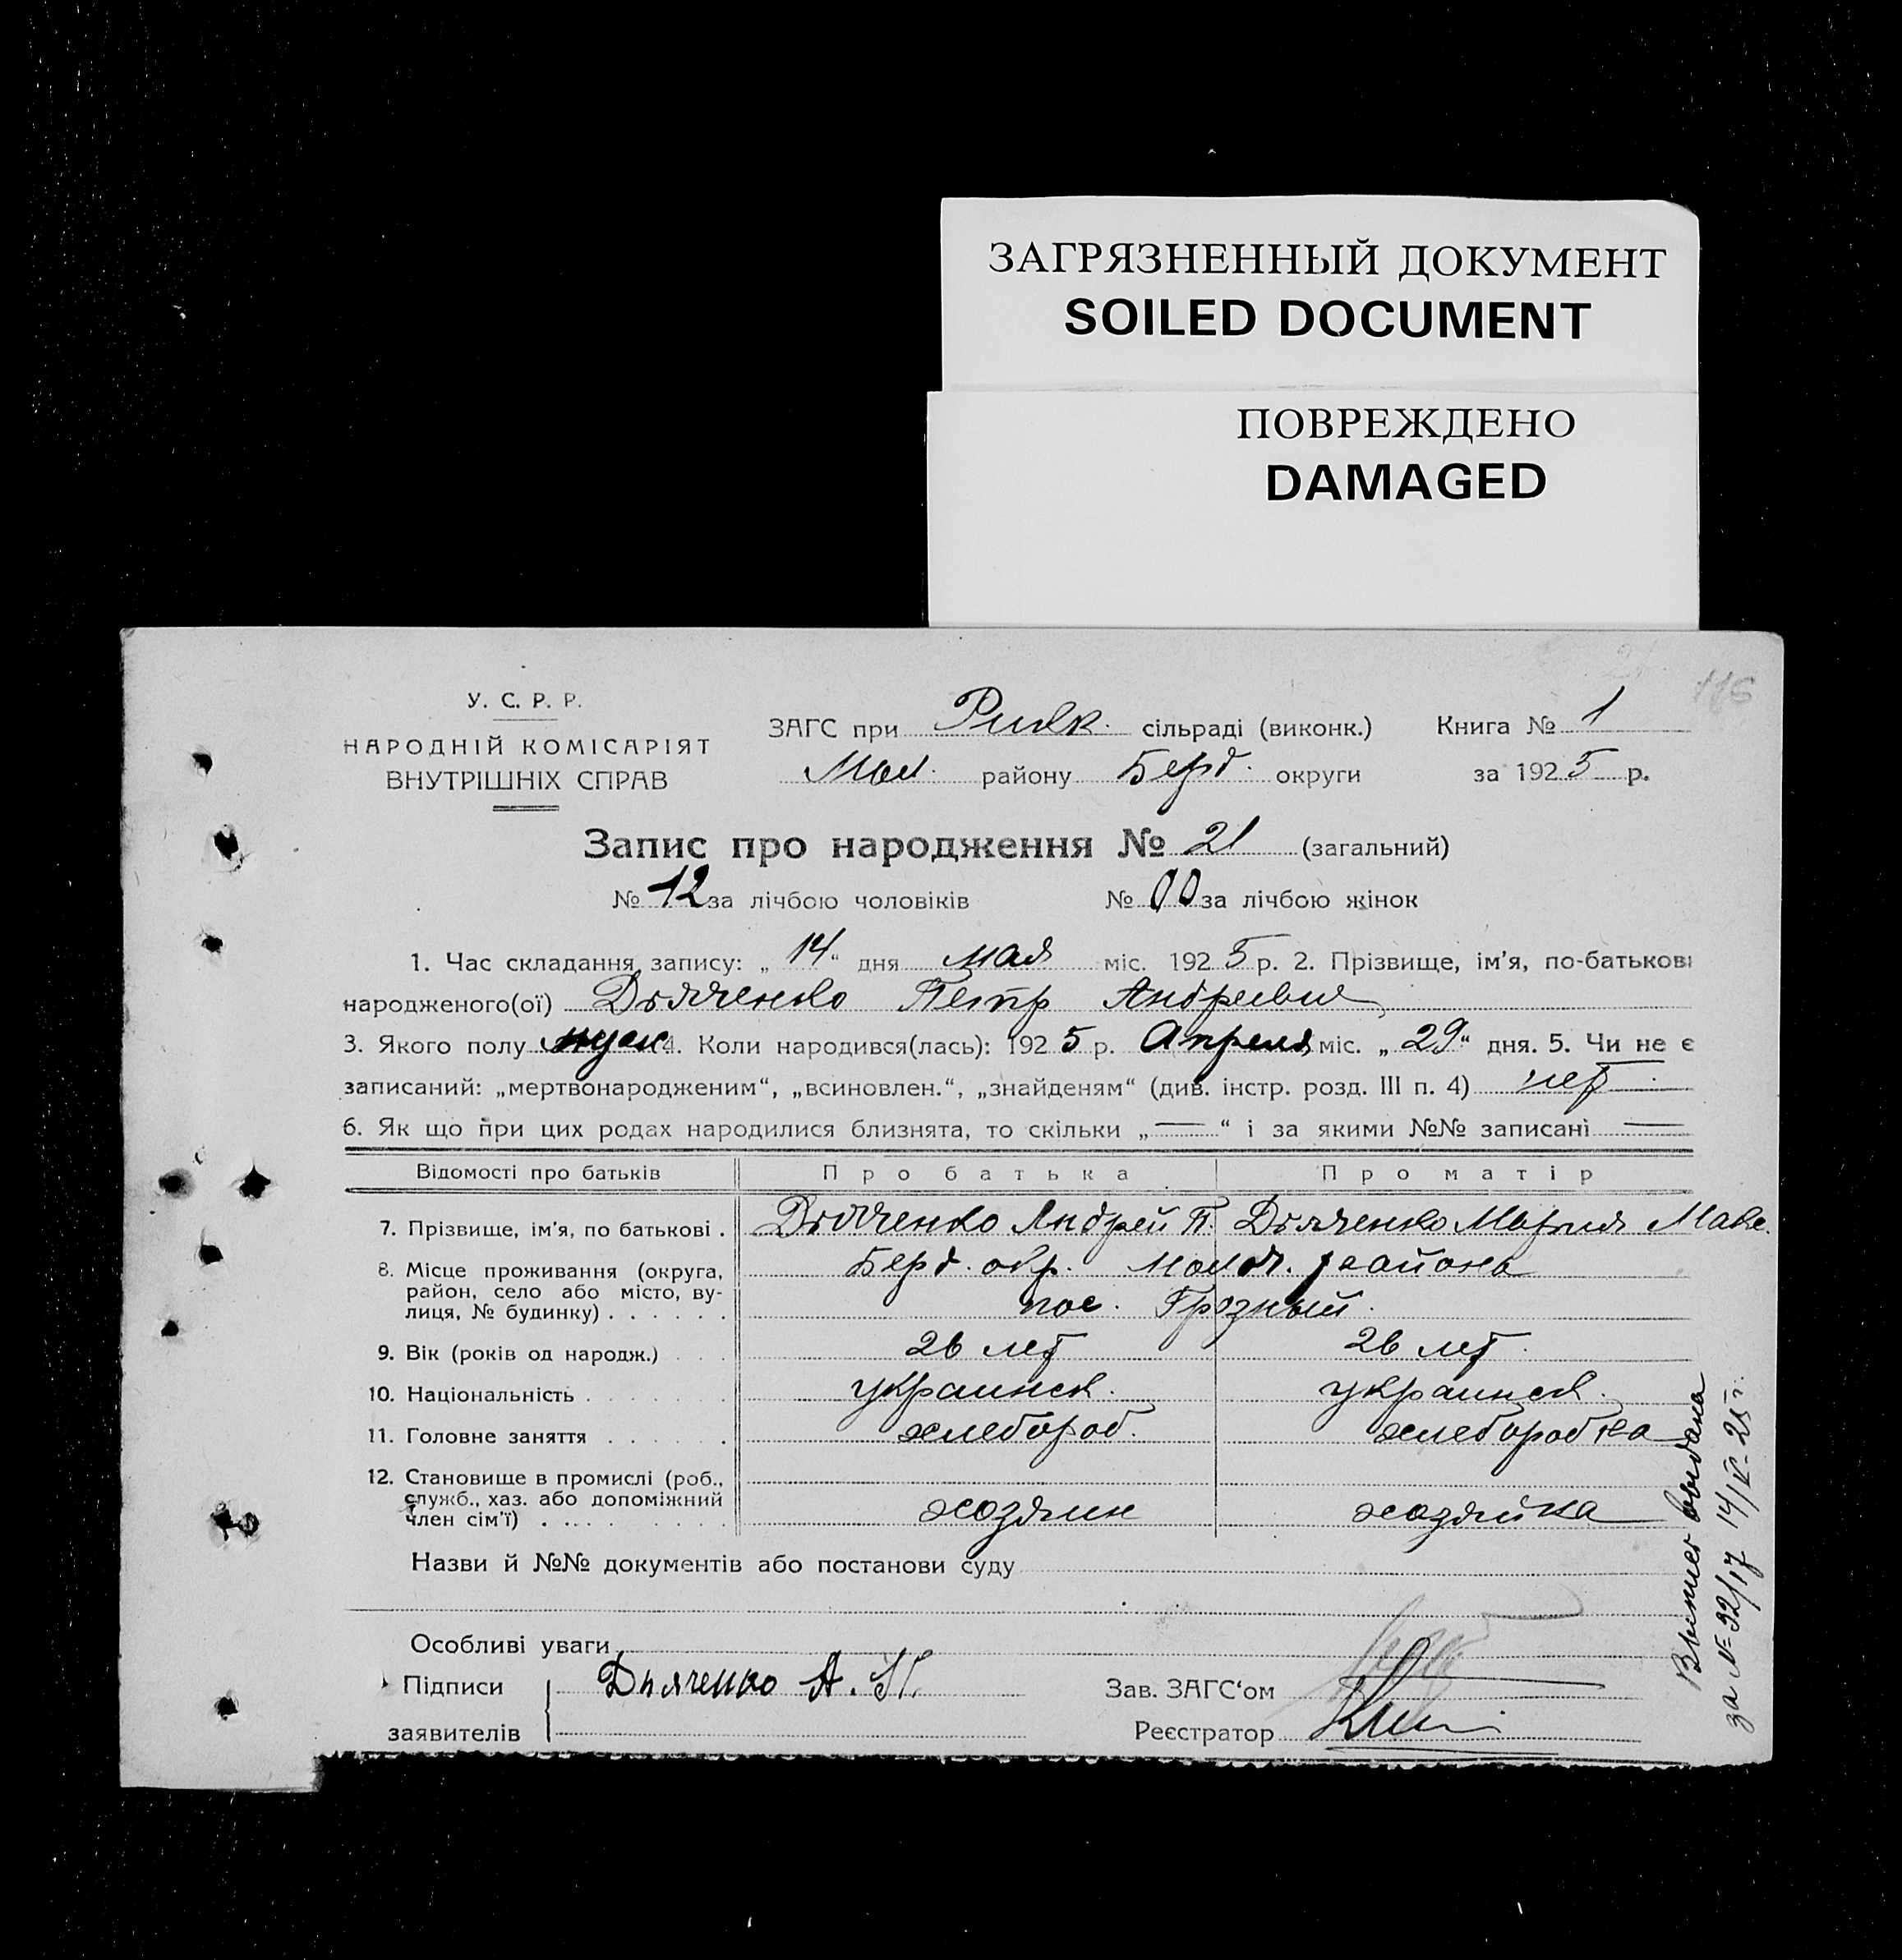 ЗАГРЯЗНЕННЫЙ ДОКУМЕНТ
SOILED DOCUMENT
ПОВРЕЖДЕНО
DAMAGED
116
У. С. Р. Р.
НАРОДНІЙ КОМІСАРІЯТ
ВНУТРІШНІХ СПРАВ
ЗАГС при сільраді (виконк.) Книга № 1
Мол. району Берд. округи за 1925 р.
Запис про народження № 21 (загальний)
№ 12 за лічбою чоловіків № 00 за лічбою жінок
1. Час складання запису: „14“ дня мая міс. 1925 р. 2. Прізвище, ім’я, по-батькові
народженого(ої) Дьяченко Петр Андреевич
3. Якого полу муж 4. Коли народився(лась): 1925 р. Апреля міс. „29“ дня. 5. Чи не є
записаний: „мертвонародженим“, „всиновлен.“, „знайденям“ (див. інстр. розд. III п. 4) нет
6. Як що при цих родах народилися близнята, то скільки „—“ і за якими №№ записані —
Відомості про батьків Про батька Про матір
7. Прізвище, ім’я, по батькові . Дьяченко Андрей П. Дьяченко Мария Макс.
8. Місце проживання (округа, Берд. окр. Мол. района
район, село або місто, ву-
лиця, № будинку) . . . . . . пос. Грозный.
9. Вік (років од народж.) . . . 26 лет 26 лет.
10. Національність . . . . . . . украинск. украинск.
11. Головне заняття . . . . . . хлебороб. хлеборобка
12. Становище в промислі (роб.,
служб., хаз. або допоміжний
член сім’ї) . . . . . . . . . хозяин хозяйка
Назви й №№ документів або постанови суду
Особливі уваги
Підписи Дьяченко А. П. Зав. ЗАГС‘ом
заявителів Реєстратор
выдана
за № 32/17 14/V-25 г.